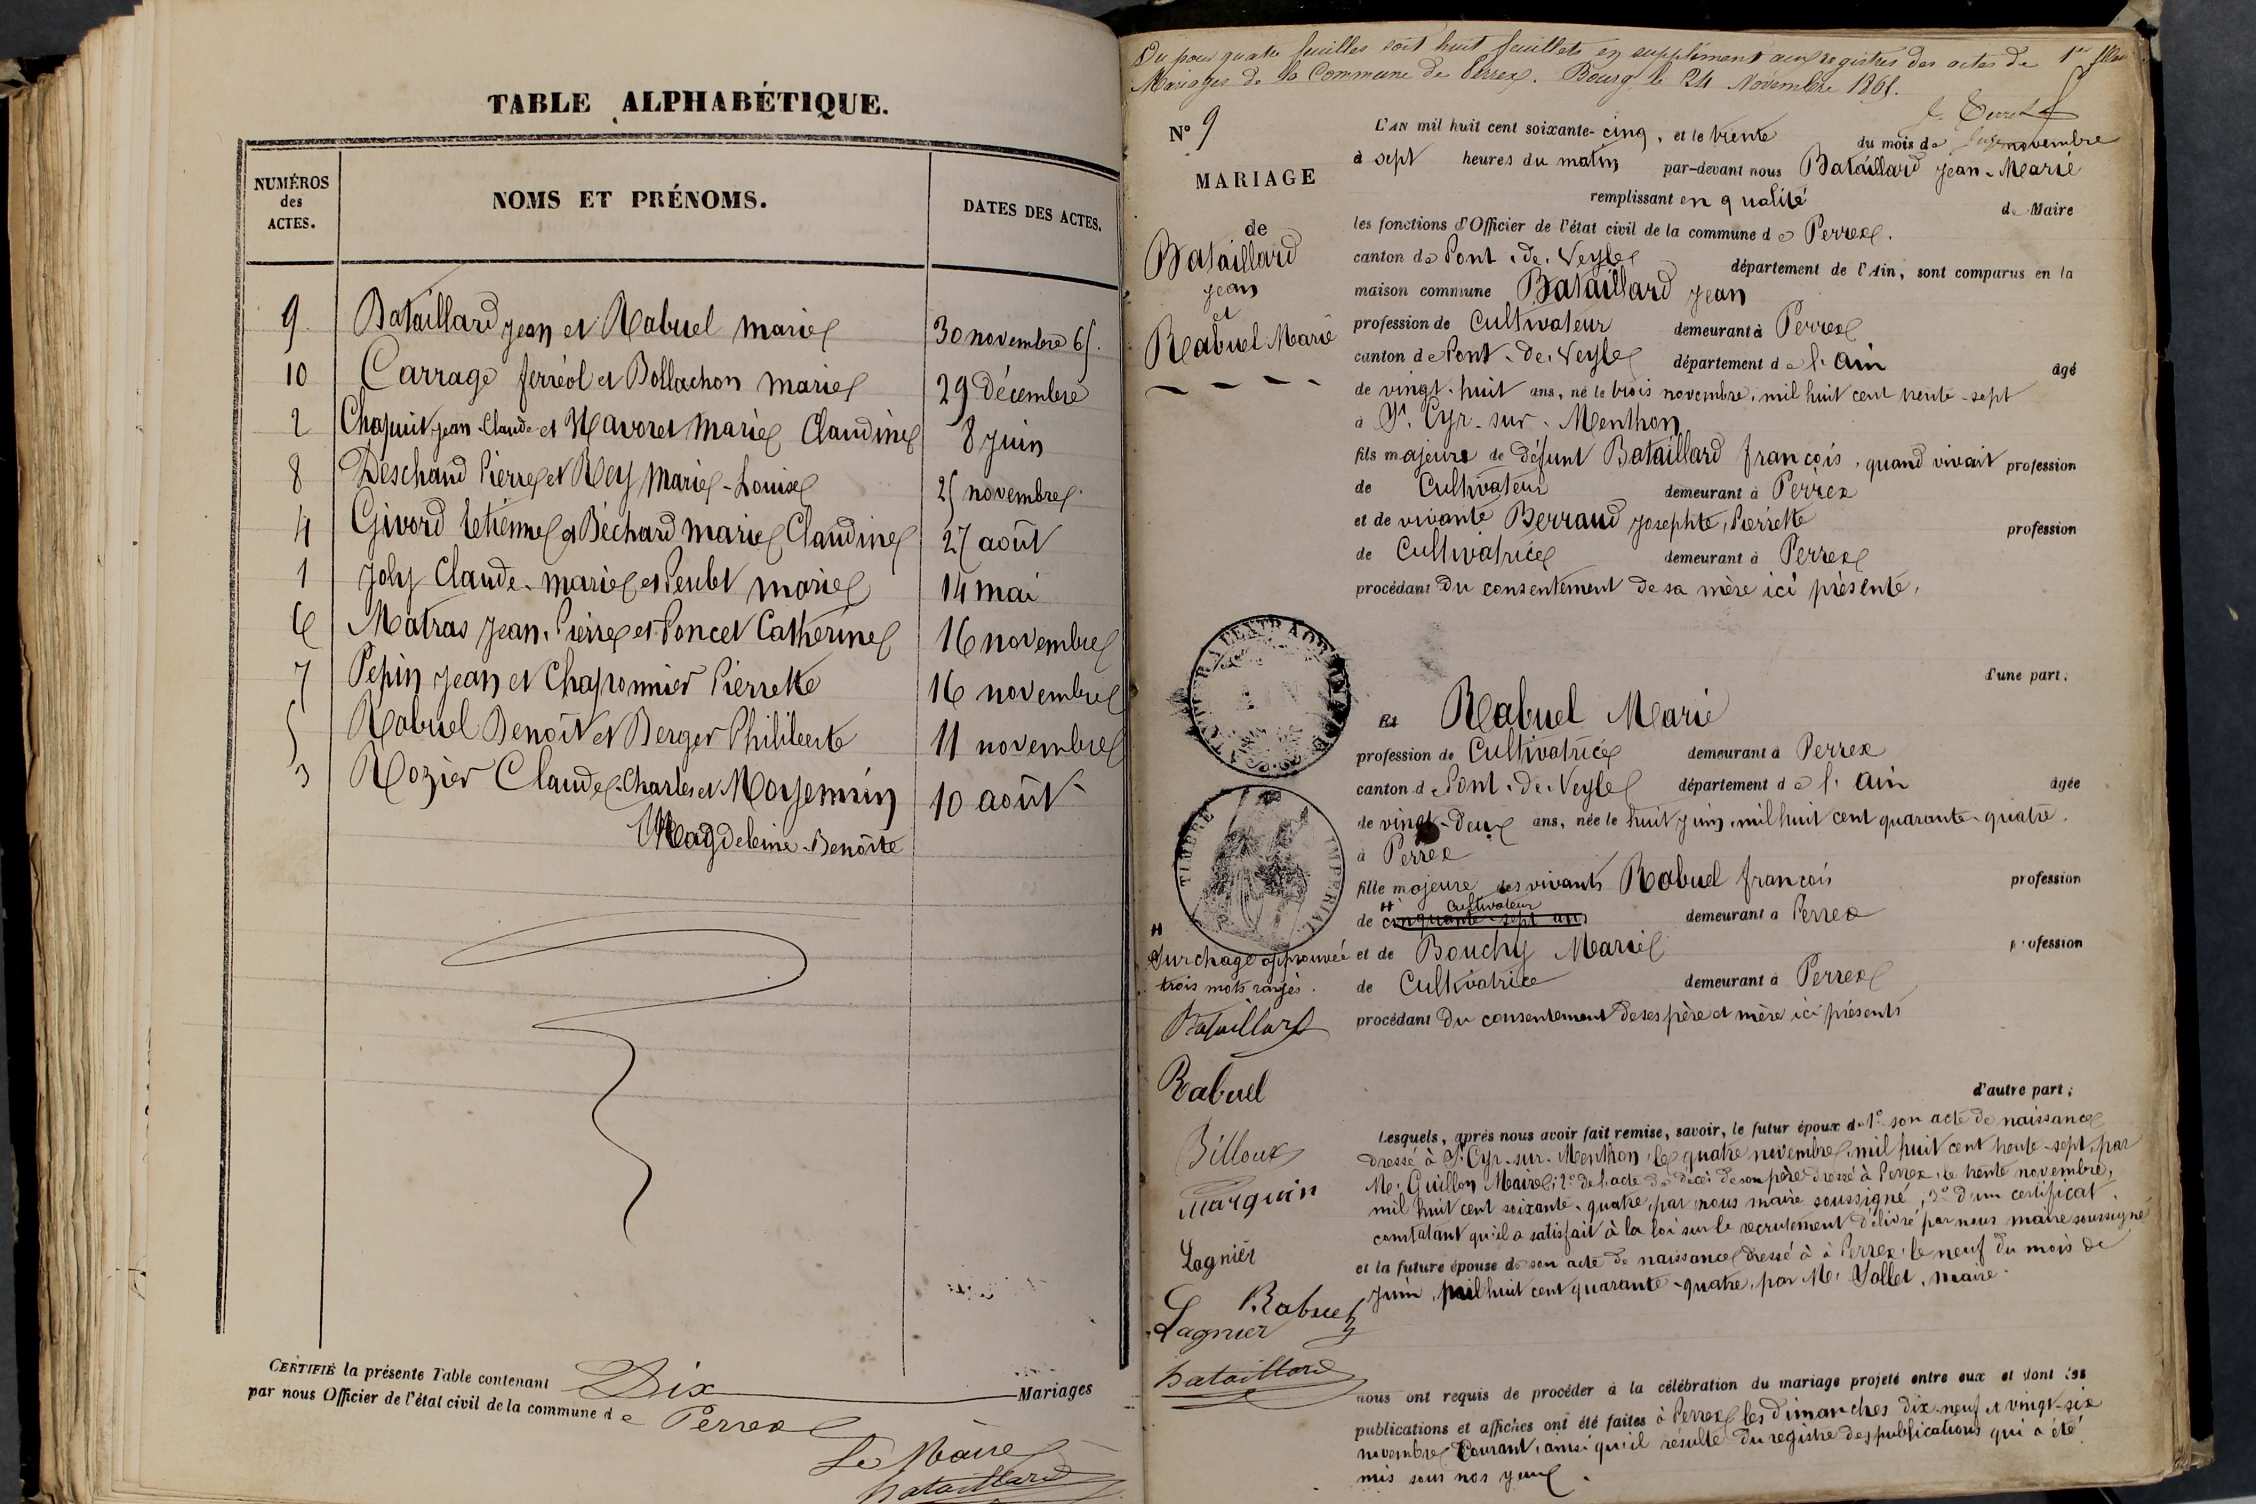 TABLE ALPHABÉTIQUE.
NUMÉROS des ACTES.
NOMS ET PRÉNOMS.
DATES DES ACTES.
9 Bataillard Jean et Rabuel Marie 30 novembre 65.
10 Carrage ferréol et Bollachon Marie 29 Décembre
2 Chapuit Jean-Claude et Navoret Marie Claudine 8 Juin
8 Deschand Pierre et Rey Marie-Louise 25 novembre.
4 Givord Etienne et Béchard Marie Claudine 27 août
1 Joly Claude-Marie et Peulet Marie 14 mai
6 Matras Jean-Pierre et Poncet Catherine 16 novembre
7 Pepin Jean et Chaponnier Pierrette 16 novembre
5 Rabuel Benoît et Berger Philiberte 11 novembre
3 Rozier Claude-Charles et Moyemin 10 août
Magdeleine-Benoîte
CERTIFIÉ la présente Table contenant Dix Mariages
par nous Officier de l'état civil de la commune de Perrex
Le Maire
Bataillard
Vu pour quatre feuilles soit huit feuillets en supplément aux registres des actes de
Mariages de la Commune de Perrex. Bourg le 24 Novembre 1865.
N° 9
MARIAGE
de
Bataillard
Jean
et
Rabuel Marie
L'AN mil huit cent soixante-cinq, et le trente du mois de novembre
à sept heures du matin par-devant nous Bataillard Jean-Marie
remplissant en qualité de Maire
les fonctions d'Officier de l'état civil de la commune de Perrex.
canton de Pont-de-Veyle département de l'Ain, sont comparus en la
maison commune Bataillard Jean
profession de Cultivateur demeurant à Perrex
canton de Pont-de-Veyle département de l'ain âgé
de vingt-huit ans, né le trois novembre, mil huit cent trente-sept
à St. Cyr-sur-Menthon
fils majeur de défunt Bataillard françois, quand vivait profession
de Cultivateur demeurant à Perrex
et de vivante Berraud Josephte, Pierrette profession
de Cultivatrice demeurant à Perrex
procédant du consentement de sa mère ici présente,
d'une part;
Et Rabuel Marie
profession de Cultivatrice demeurant à Perrex
canton de Pont-de-Veyle département de l'ain âgée
de vingt-deux ans, née le huit Juin, mil huit cent quarante-quatre.
à Perrex
fille majeure des vivants Rabuel françois profession
de cinquante-sept ans Cultivateur demeurant à Perrex
et de Bouchy Marie profession
de Cultivatrice demeurant à Perrex
procédant du consentement de ses père et mère ici présents
d'autre part;
TIMBRE IMPÉRIAL
Surchage approuvée
trois mots rayés.
Bataillard
Rabuel
Billoux
Marguin
Lagnier
Rabuel
Lagnier
Bataillard
Lesquels, après nous avoir fait remise, savoir, le futur époux de 1° son acte de naissance
dressé à St. Cyr-sur-Menthon, le quatre novembre, mil huit cent trente-sept, par
Mr. Guillon Maire; 2° de l'acte de décès de son père dressé à Perrex, le trente novembre,
mil huit cent soixante-quatre, par nous maire soussigné, 3° d'un certificat,
constatant qu'il a satisfait à la loi sur le recrutement délivré par nous maire soussigné
et la future épouse de son acte de naissance dressé à à Perrex, le neuf du mois de
Juin, mil huit cent quarante-quatre, par Mr. Vollet, maire.
nous ont requis de procéder à la célébration du mariage projeté entre eux et dont les
publications et affiches ont été faites à Perrex les Dimanches dix-neuf et vingt-six
novembre Courant, ainsi qu'il résulte du registre des publications qui a été
mis sous nos yeux.